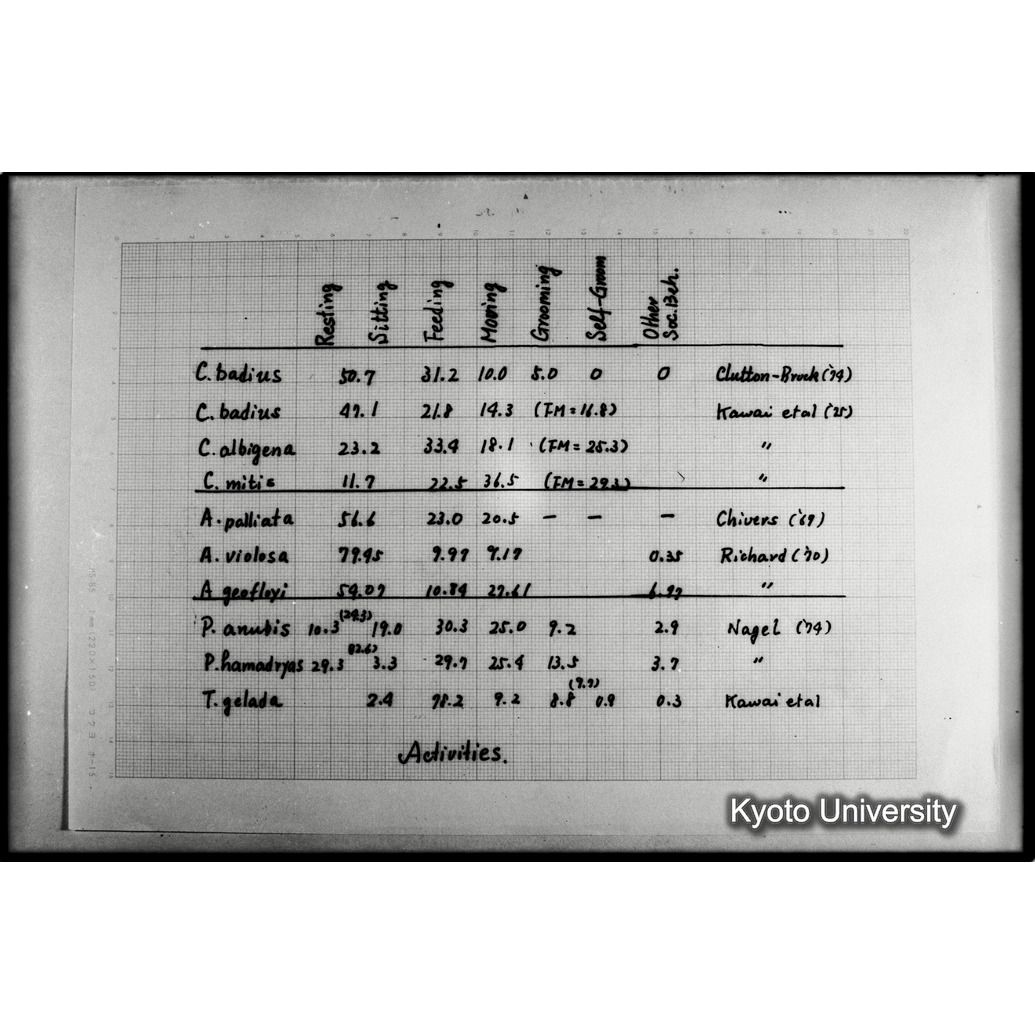 Resting Sitting Feeding Moving Grooming Self-Groom Other Soc. Beh.
C. badius 50.7 31.2 10.0 5.0 0 0 Clutton-Brock ('74)
C. badius 47.1 21.8 14.3 (IM = 16.8) Kawai et al ('75)
C. albigena 23.2 33.4 18.1 (IM = 25.3) "
C. mitis 11.7 22.5 36.5 (IM = 29.3) "
A. palliata 56.6 23.0 20.5 – – – Chivers ('69)
A. violosa 79.45 9.97 9.17 0.35 Richard ('70)
A geofloyi 54.07 10.84 27.61 6.97 "
P. anubis 10.3 (29.3) 19.0 30.3 25.0 9.2 2.9 Nagel ('74)
P. hamadryas 29.3 (32.6) 3.3 29.7 25.4 13.5 3.7 "
T. gelada 2.4 78.2 9.2 8.8 (9.7) 0.9 0.3 Kawai et al
Activities.
Kyoto University